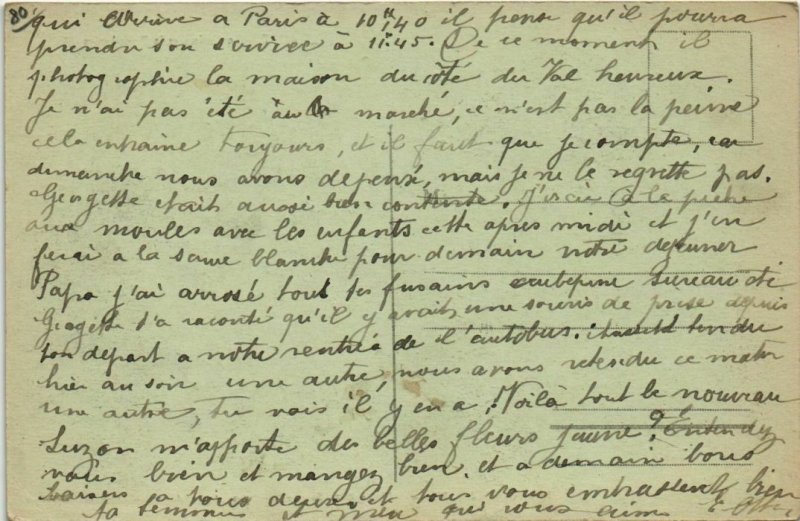 80 qui arrive a Paris à 10H40 il pense qu'il pourra
prendre son service à 11H.45. De ce moment il
photographie la maison du côté du Val heureux.
Je n'ai pas été au marché, ce n'est pas la peine
cela entraine toujours, et il faut que je compte, car
dimanche nous avons dépensé, mais je ne le regrette pas.
Georgette était aussi bien contente. J'irai à la pêche
aux moules avec les enfants cette apres midi et j'en
ferai a la sauce blanche pour demain notre dejeuner
Papa j'ai arrosé tout les fusains aubepine sureau etc
Georgette t'a raconté qu'il y avait une souris de prise depuis
ton départ a notre rentrée de l'autobus. tendu
hier au soir une autre, nous avons retendu ce matin
une autre, tu vois il y en a! Voilà tout le nouveau
Suzon m'apporte des belles fleurs jaune?
vous bien et mangez bien et a demain bons
baisers a tous deux et tous vous embrassent bien
ta femme et qui vous aime